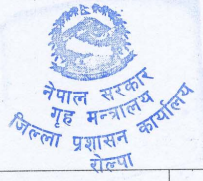 नेपाल सरकार
गृह मन्त्रालय
जिल्ला प्रशासन कार्यालय
रोल्पा